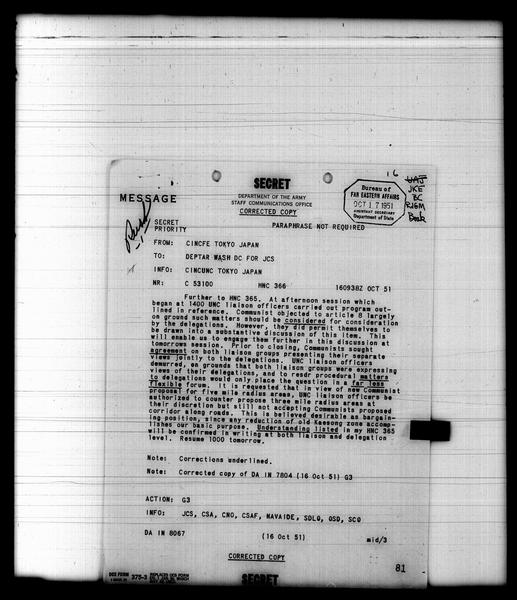 16
UAJ
JKE
BC
RJGM
Book
SECRET
MESSAGE
DEPARTMENT OF THE ARMY
STAFF COMMUNICATIONS OFFICE
CORRECTED COPY
Bureau of
FAR EASTERN AFFAIRS
OCT 17 1951
ASSISTANT SECRETARY
Department of State
SECRET
PRIORITY
PARAPHRASE NOT REQUIRED
FROM: CINCFE TOKYO JAPAN
TO: DEPTAR WASH DC FOR JCS
INFO: CINCUNC TOKYO JAPAN
NR: C 53100 HNC 366 160938Z OCT 51
Further to HNC 365. At afternoon session which
began at 1400 UNC liaison officers carried out program out-
lined in reference. Communist objected to article 8 largely
on ground such matters should be considered for consideration
by the delegations. However, they did permit themselves to
be drawn into a substantive discussion of this item. This
will enable us to engage them further in this discussion at
tomorrows session. Prior to closing, Communists sought
agreement on both liaison groups presenting their separate
views jointly to the delegations. UNC liaison officers
demurred, on grounds that both liaison groups were expressing
views of their delegations, and to resdr procedural matters
to delegations would only place the question in a far less
flexible forum. It is requested that in view of new Communist
proposal for five mile radius areas, UNC liaison officers be
authorized to counter propose three mile radius areas at
their discretion but still not accepting Communists proposed
corridor along roads. This is believed desirable as bargain-
ing position, since any reduction of old Kaesong zone accomp-
lishes our basic purpose. Understanding listed in my HNC 365
will be confirmed in writing at both liaison and delegation
level. Resume 1000 tomorrow.
Note: Corrections underlined.
Note: Corrected copy of DA IN 7804 (16 Oct 51) G3
ACTION: G3
INFO: JCS, CSA, CNO, CSAF, NAVAIDE, SDLO, OSD, SCO
DA IN 8067 (16 Oct 51) mid/3
CORRECTED COPY
81
OCS FORM 375-3 REPLACES OCS FORM
SECRET